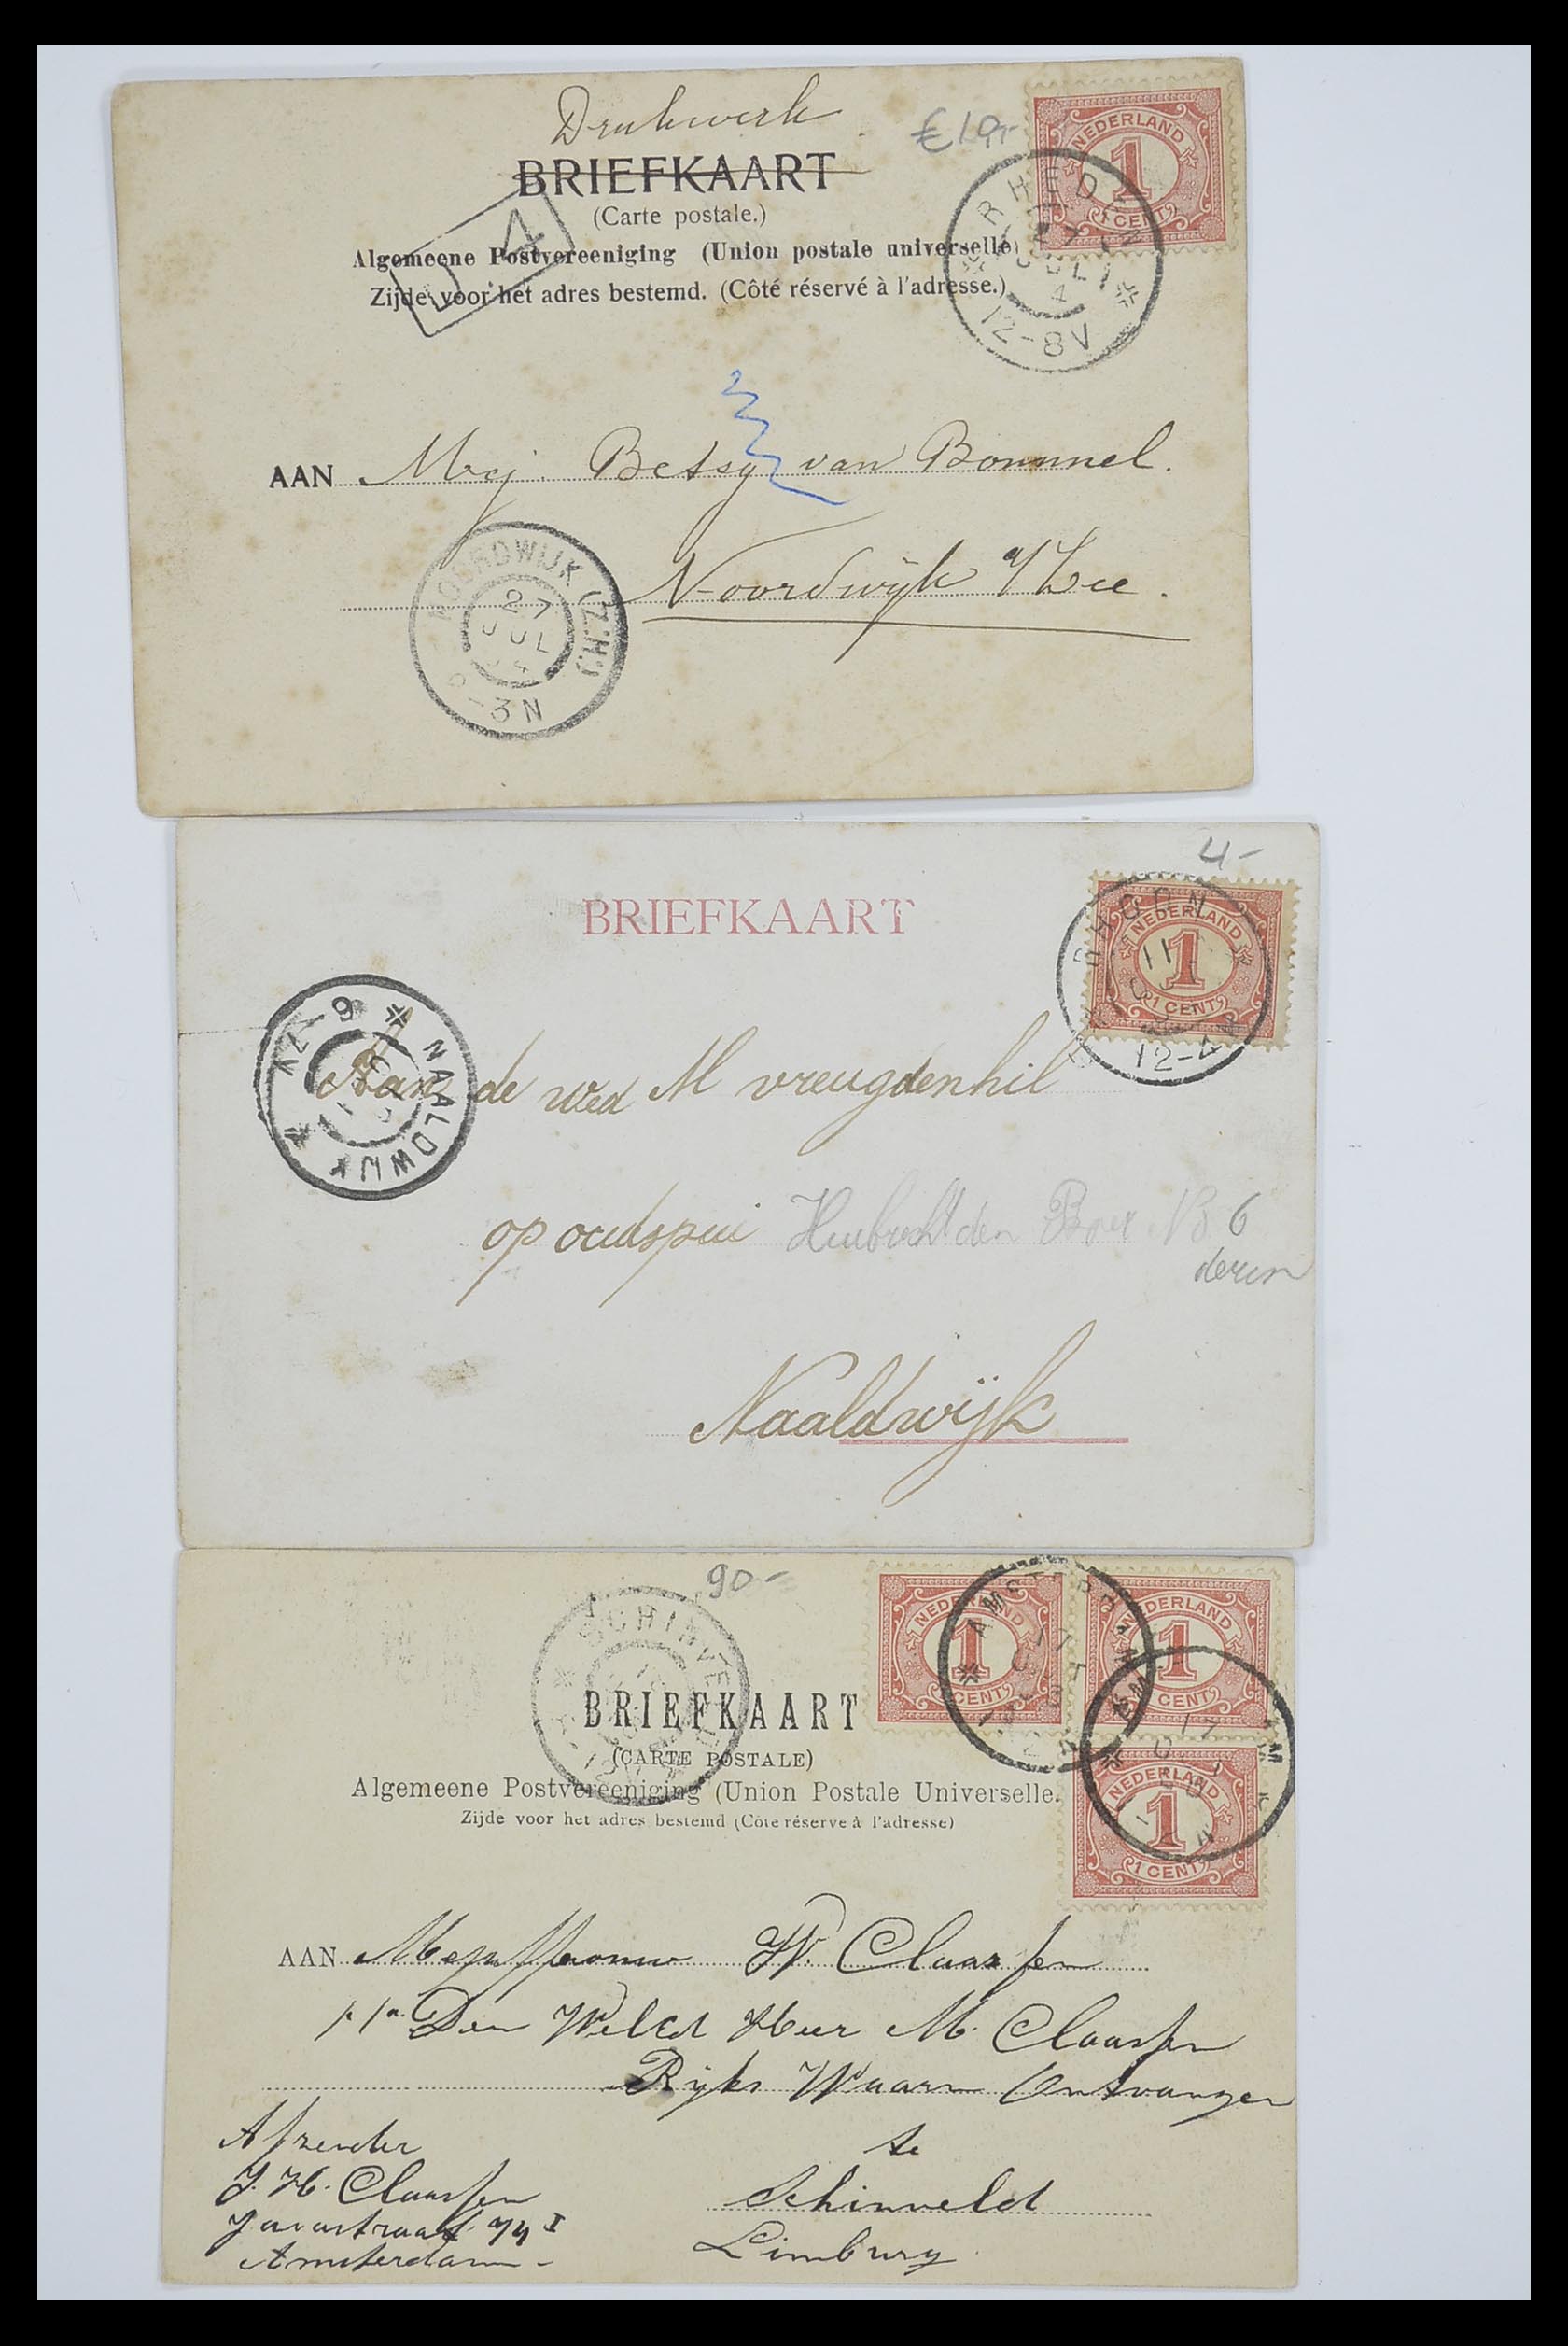 Drukwerk
€ 19,-
BRIEFKAART
(Carte postale.)
Algemeene Postvereeniging (Union postale universelle)
Zijde voor het adres bestemd. (Côté réservé à l'adresse.)
NEDERLAND
1
1 CENT
RHEDEN
27 JUL
4
12-8V
AAN Mej. Betsy van Bommel.
Noordwijk a/Zee.
NOORDWIJK (Z.H.)
27
JUL
-3N
4-
BRIEFKAART
NEDERLAND
1
1 CENT
RHOON
11
12-4
NAALDWIJK
6-7V
Aan de wed M vreugdenhil
op oudspui
No 6
Naaldwijk
90-
SCHINVELD
BRIEFKAART
(CARTE POSTALE)
Algemeene Postvereeniging (Union Postale Universelle.
Zijde voor het adres bestemd (Côte réserve à l'adresse)
NEDERLAND
1
1 CENT
NEDERLAND
1
1 CENT
NEDERLAND
1
1 CENT
AMSTERDAM
17
AAN Mejuffrouw W. Claassen
p/a Den WelEd Heer M. Claassen
Rijks Waarn Ontvanger
te
Schinveld
Limburg
Afzender
J. H. Claassen
Javastraat 74 I
Amsterdam -